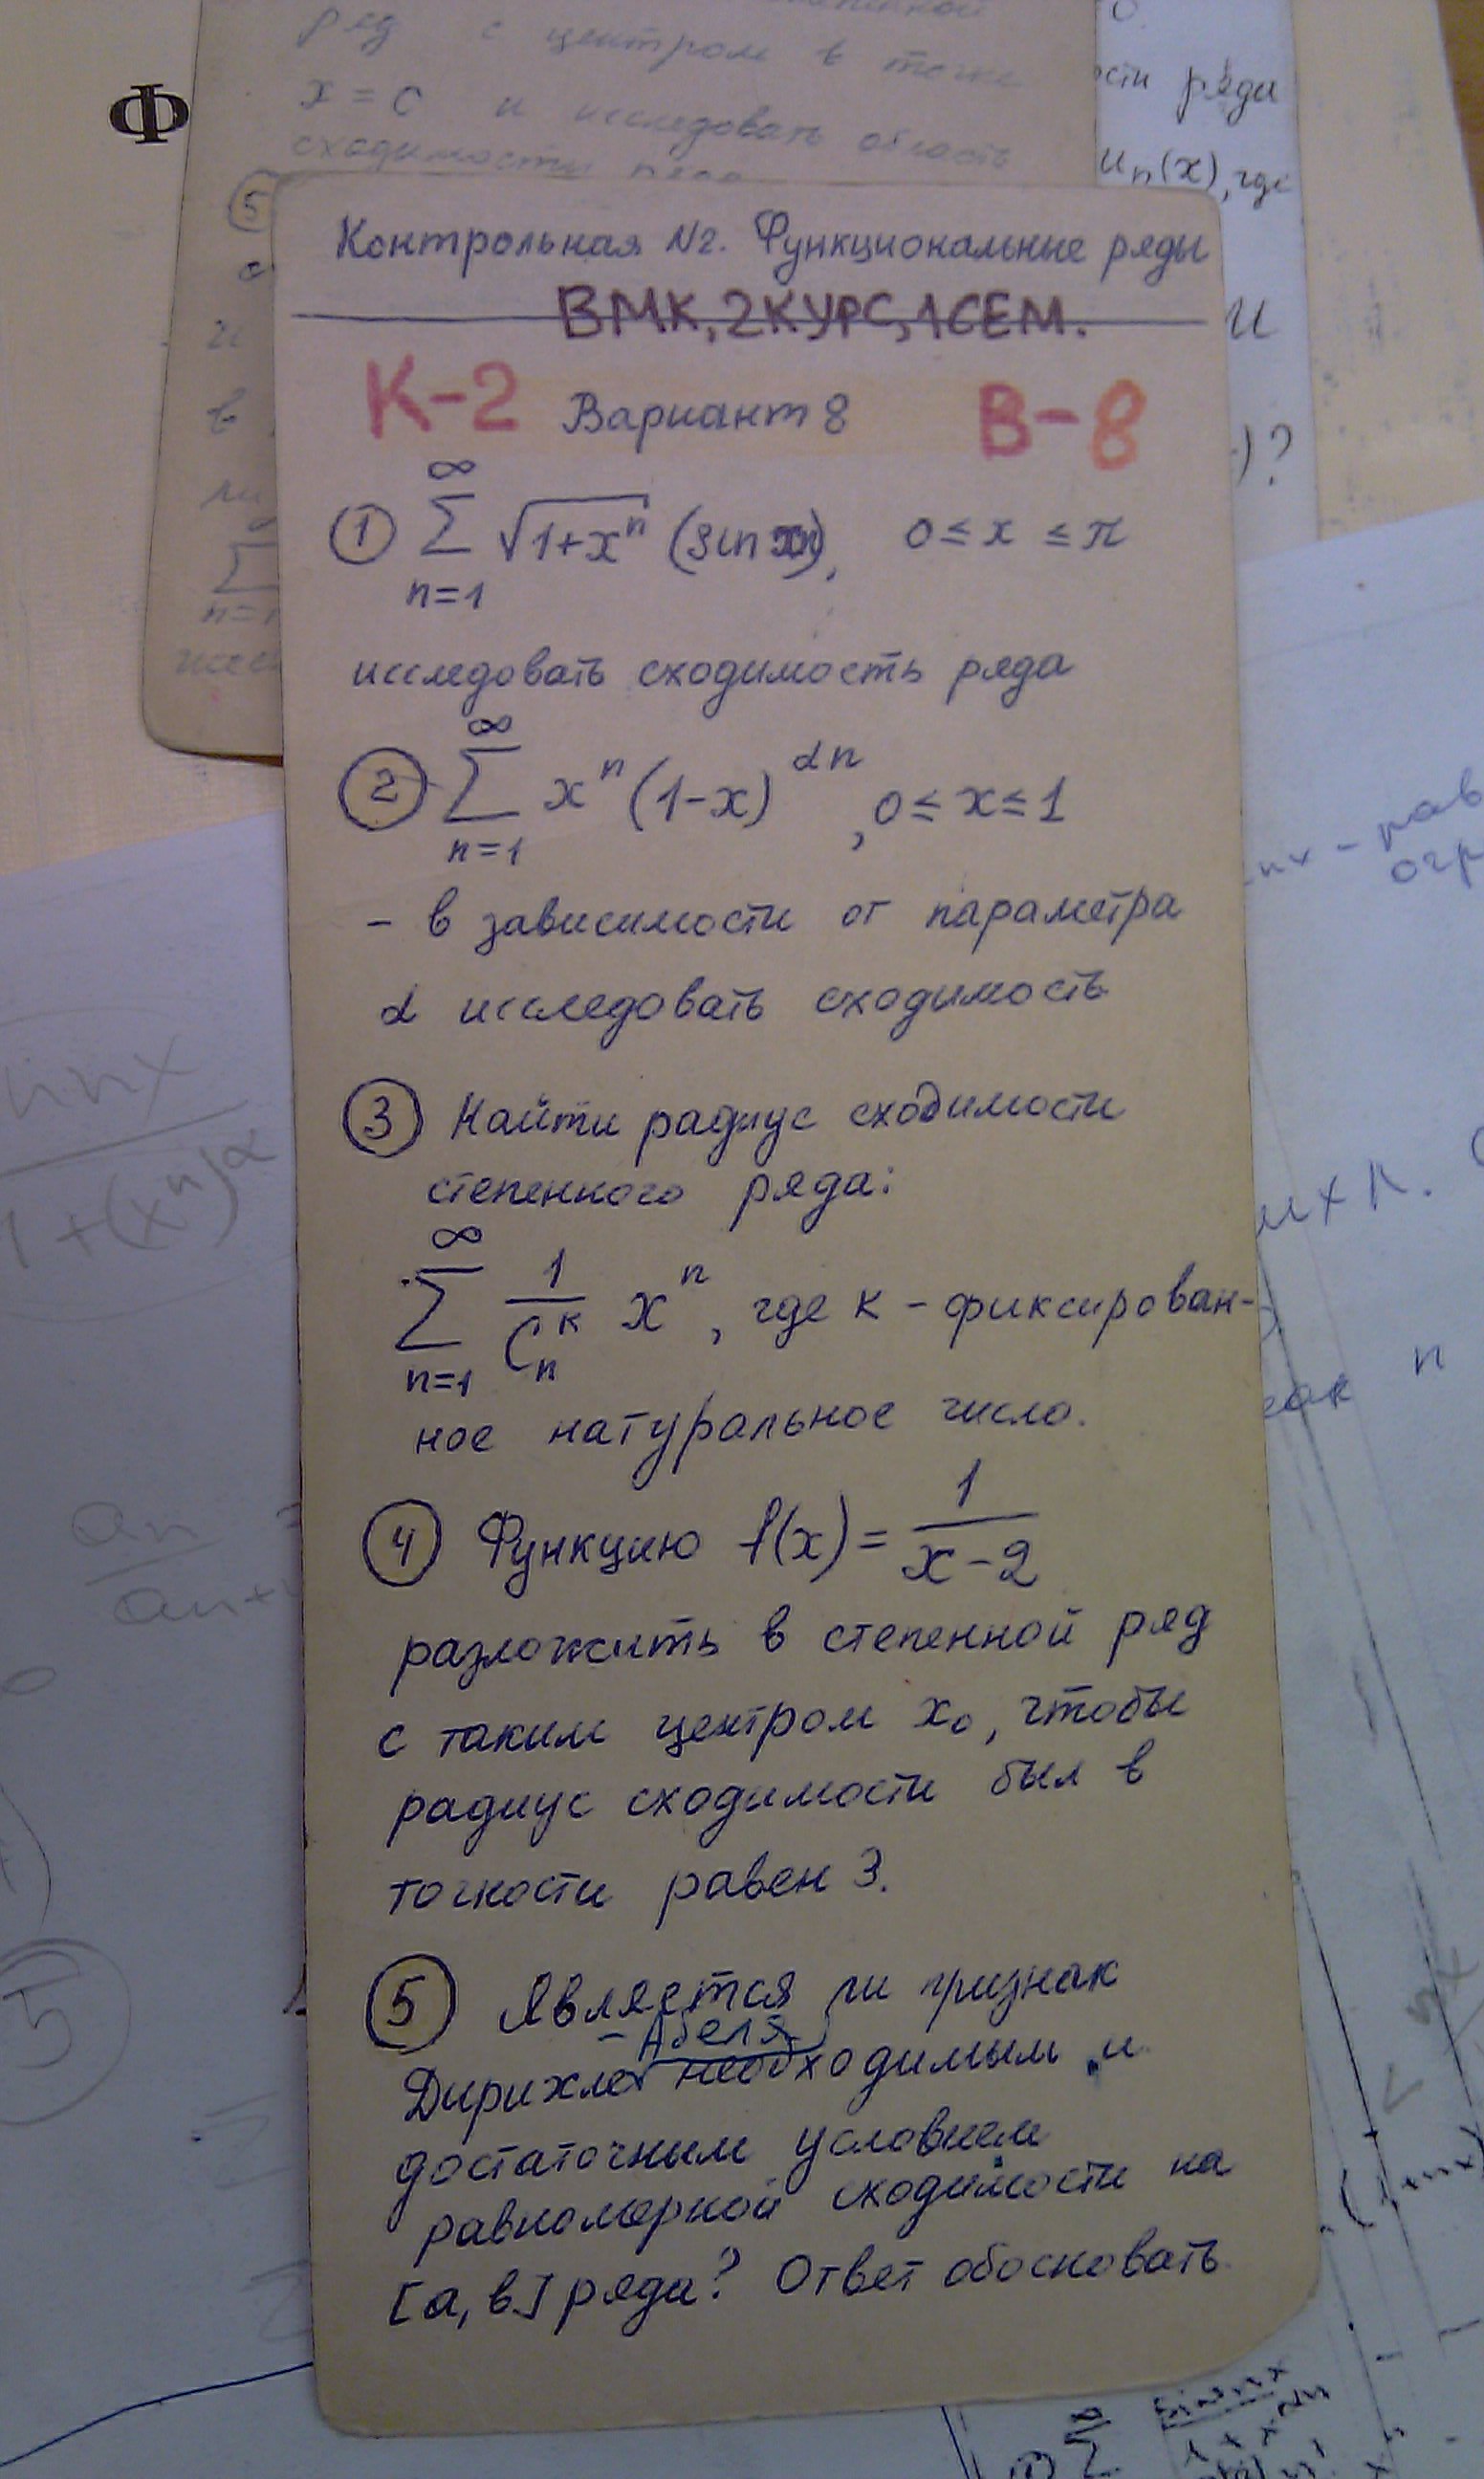 ряд с центром в точке
x = c и исследовать область
сходимости ряда
Ф
5
сти ряда
u_n(x), где
и
)?
Контрольная №2. Функциональные ряды
ВМК, 2 КУРС, 1 СЕМ.
К-2 Вариант 8 В-8
① ∑_{n=1}^{∞} √(1+x^n) (sin xn), 0 ≤ x ≤ π
исследовать сходимость ряда
② ∑_{n=1}^{∞} x^n (1-x)^{αn}, 0 ≤ x ≤ 1
- в зависимости от параметра
α исследовать сходимость
③ Найти радиус сходимости
степенного ряда:
∑_{n=1}^{∞} 1/C_n^k x^n, где k - фиксирован-
ное натуральное число.
④ Функцию f(x) = 1/(x-2)
разложить в степенной ряд
с таким центром x₀, чтобы
радиус сходимости был в
точности равен 3.
⑤ Является ли признак
Дирихле-Абеля необходимым и
достаточным условием
равномерной сходимости на
[a, b] ряда? Ответ обосновать